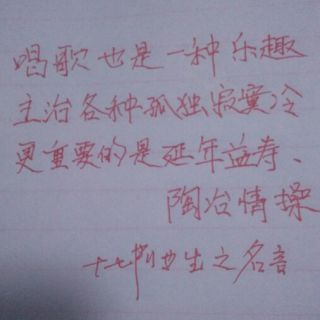 唱歌也是一种乐趣
主治各种孤独寂寞冷
更重要的是延年益寿、
陶冶情操
生之名言